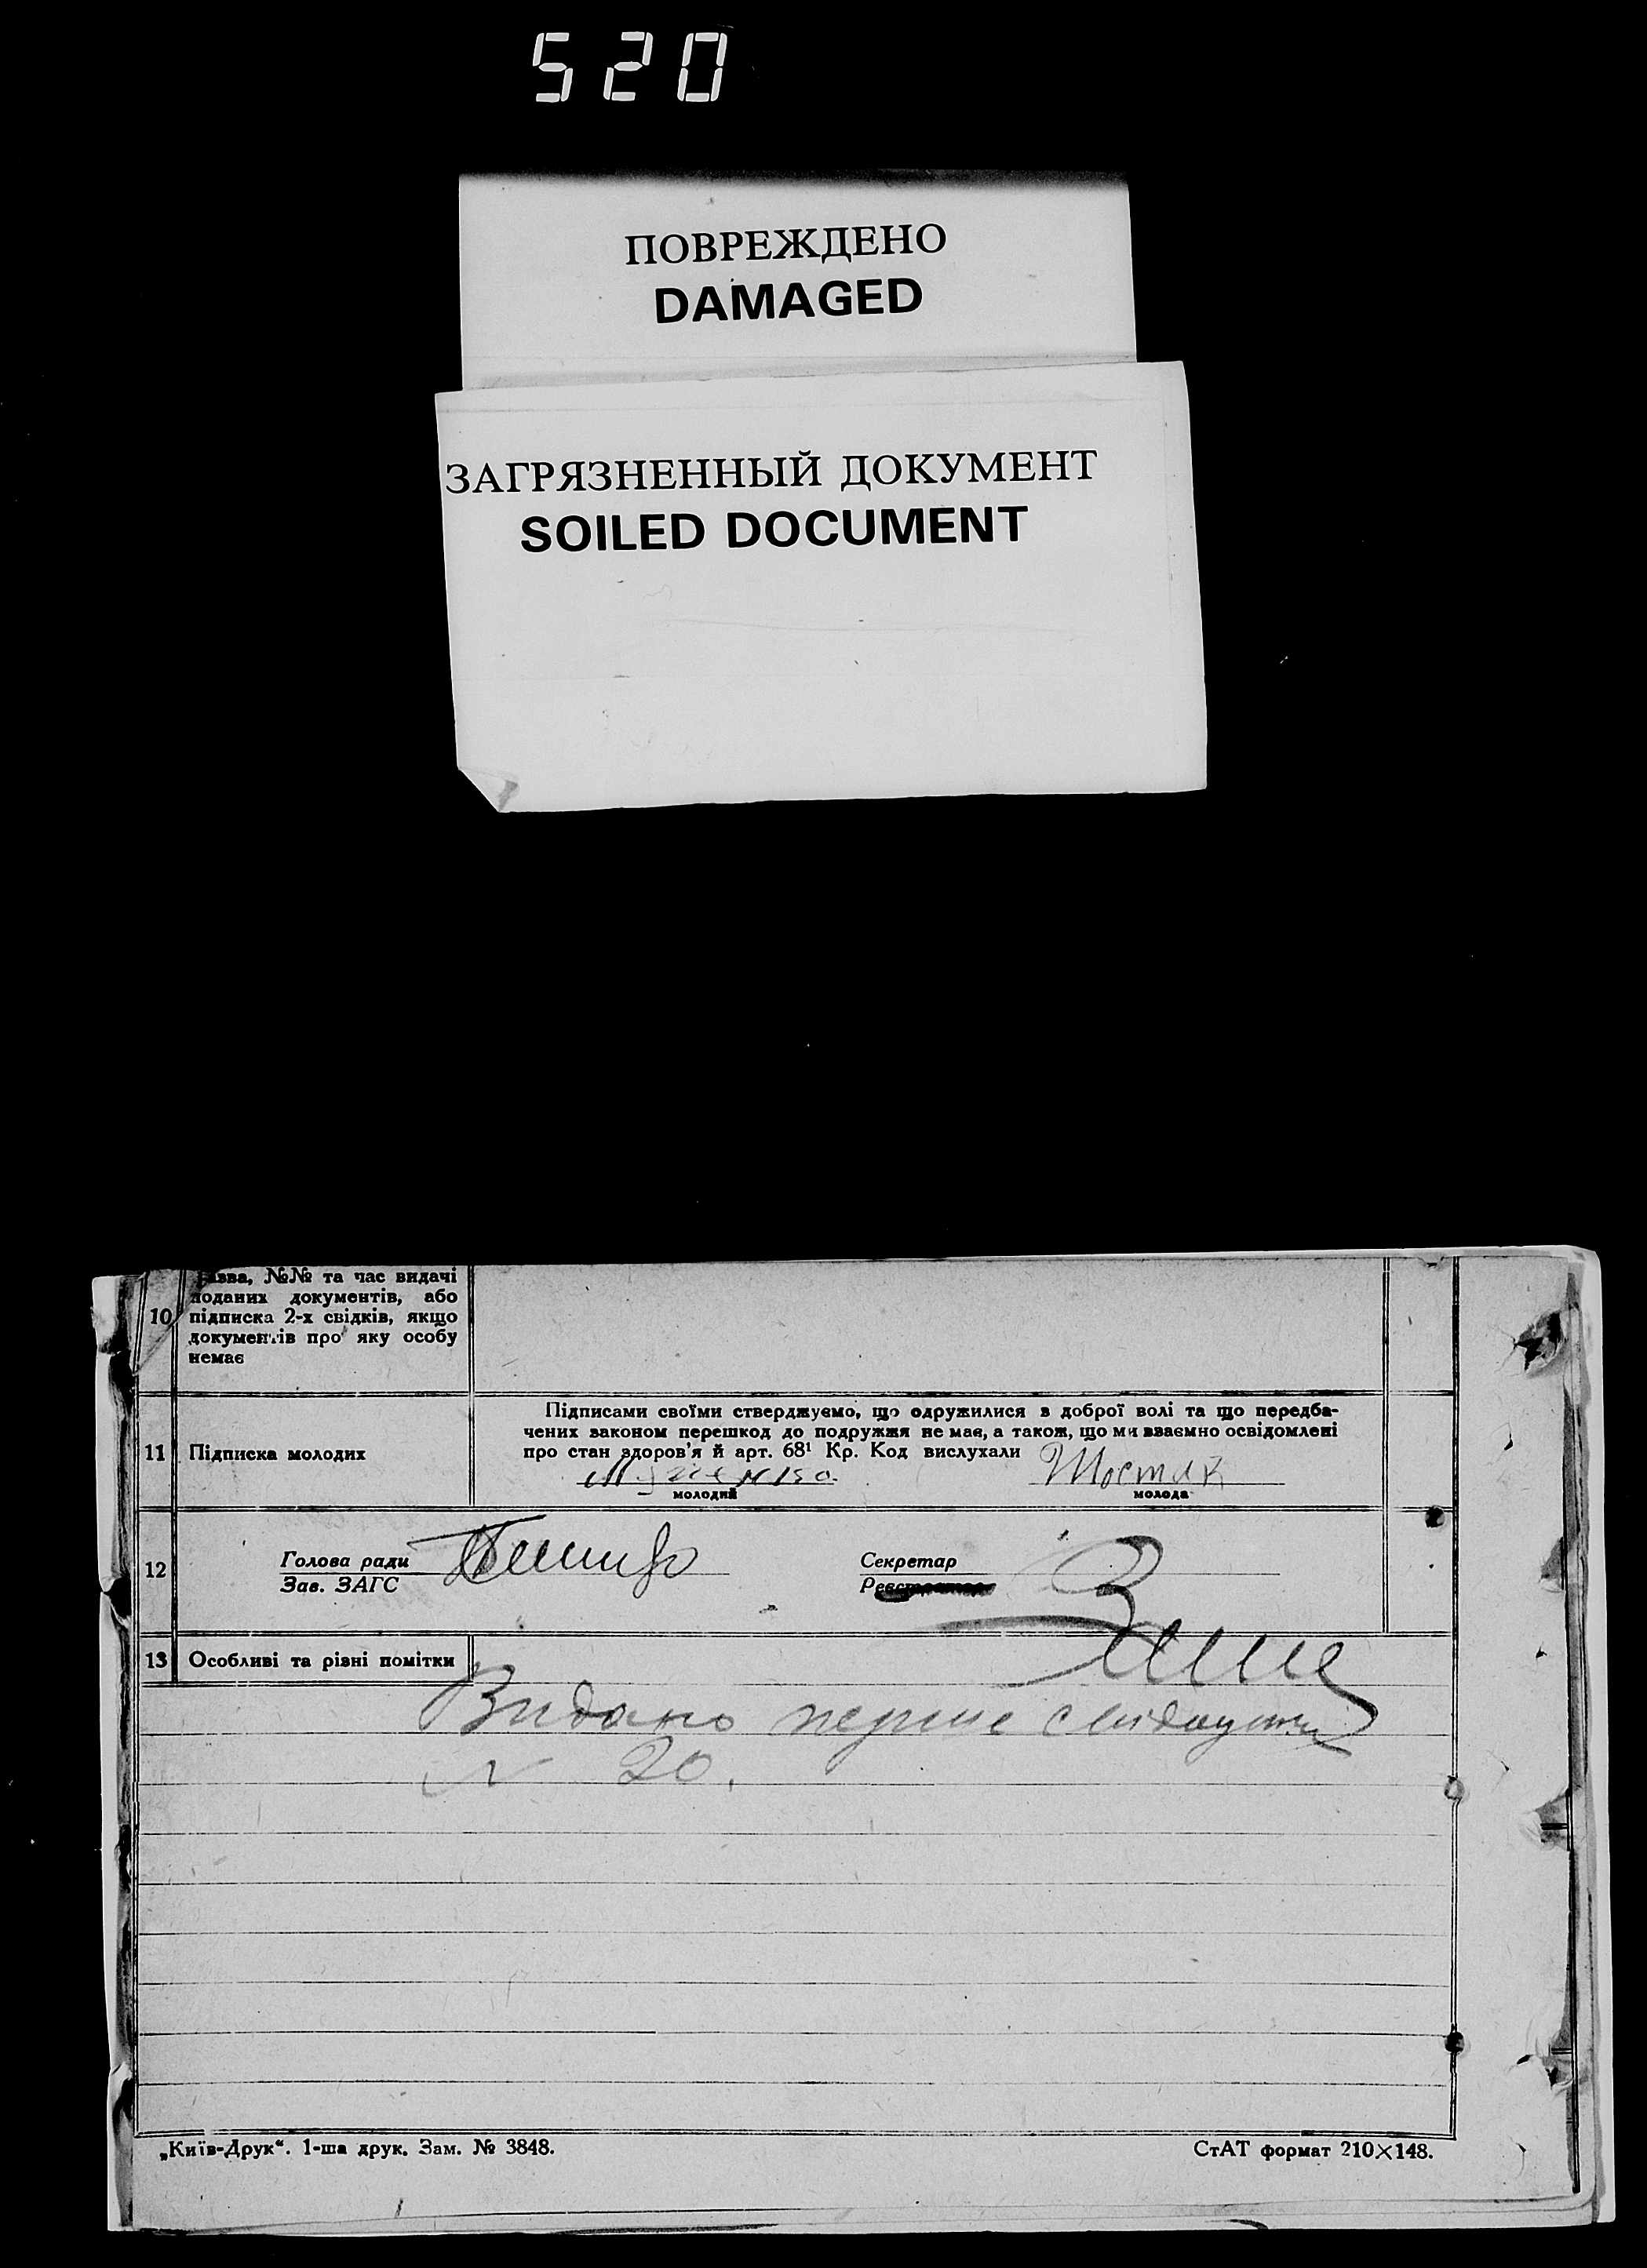 520
ПОВРЕЖДЕНО
DAMAGED
ЗАГРЯЗНЕННЫЙ ДОКУМЕНТ
SOILED DOCUMENT
10
азва, №№ та час видачі
поданих документів, або
підписка 2-х свідків, якщо
документів про яку особу
немає
11 Підписка молодих
Підписами своїми стверджуємо, що одружилися в доброї волі та що передба-
чених законом перешкод до подружжя не має, а також, що ми взаємно освідомлені
про стан здоров'я й арт. 68¹ Кр. Код вислухали
Шостак
молодий молода
12
Голова ради
Зав. ЗАГС
Секретар
Реєстратор
13 Особливі та різні помітки
Видано перше свідоцтво
N 20.
„Київ-Друк“. 1-ша друк. Зам. № 3848. СтАТ формат 210×148.